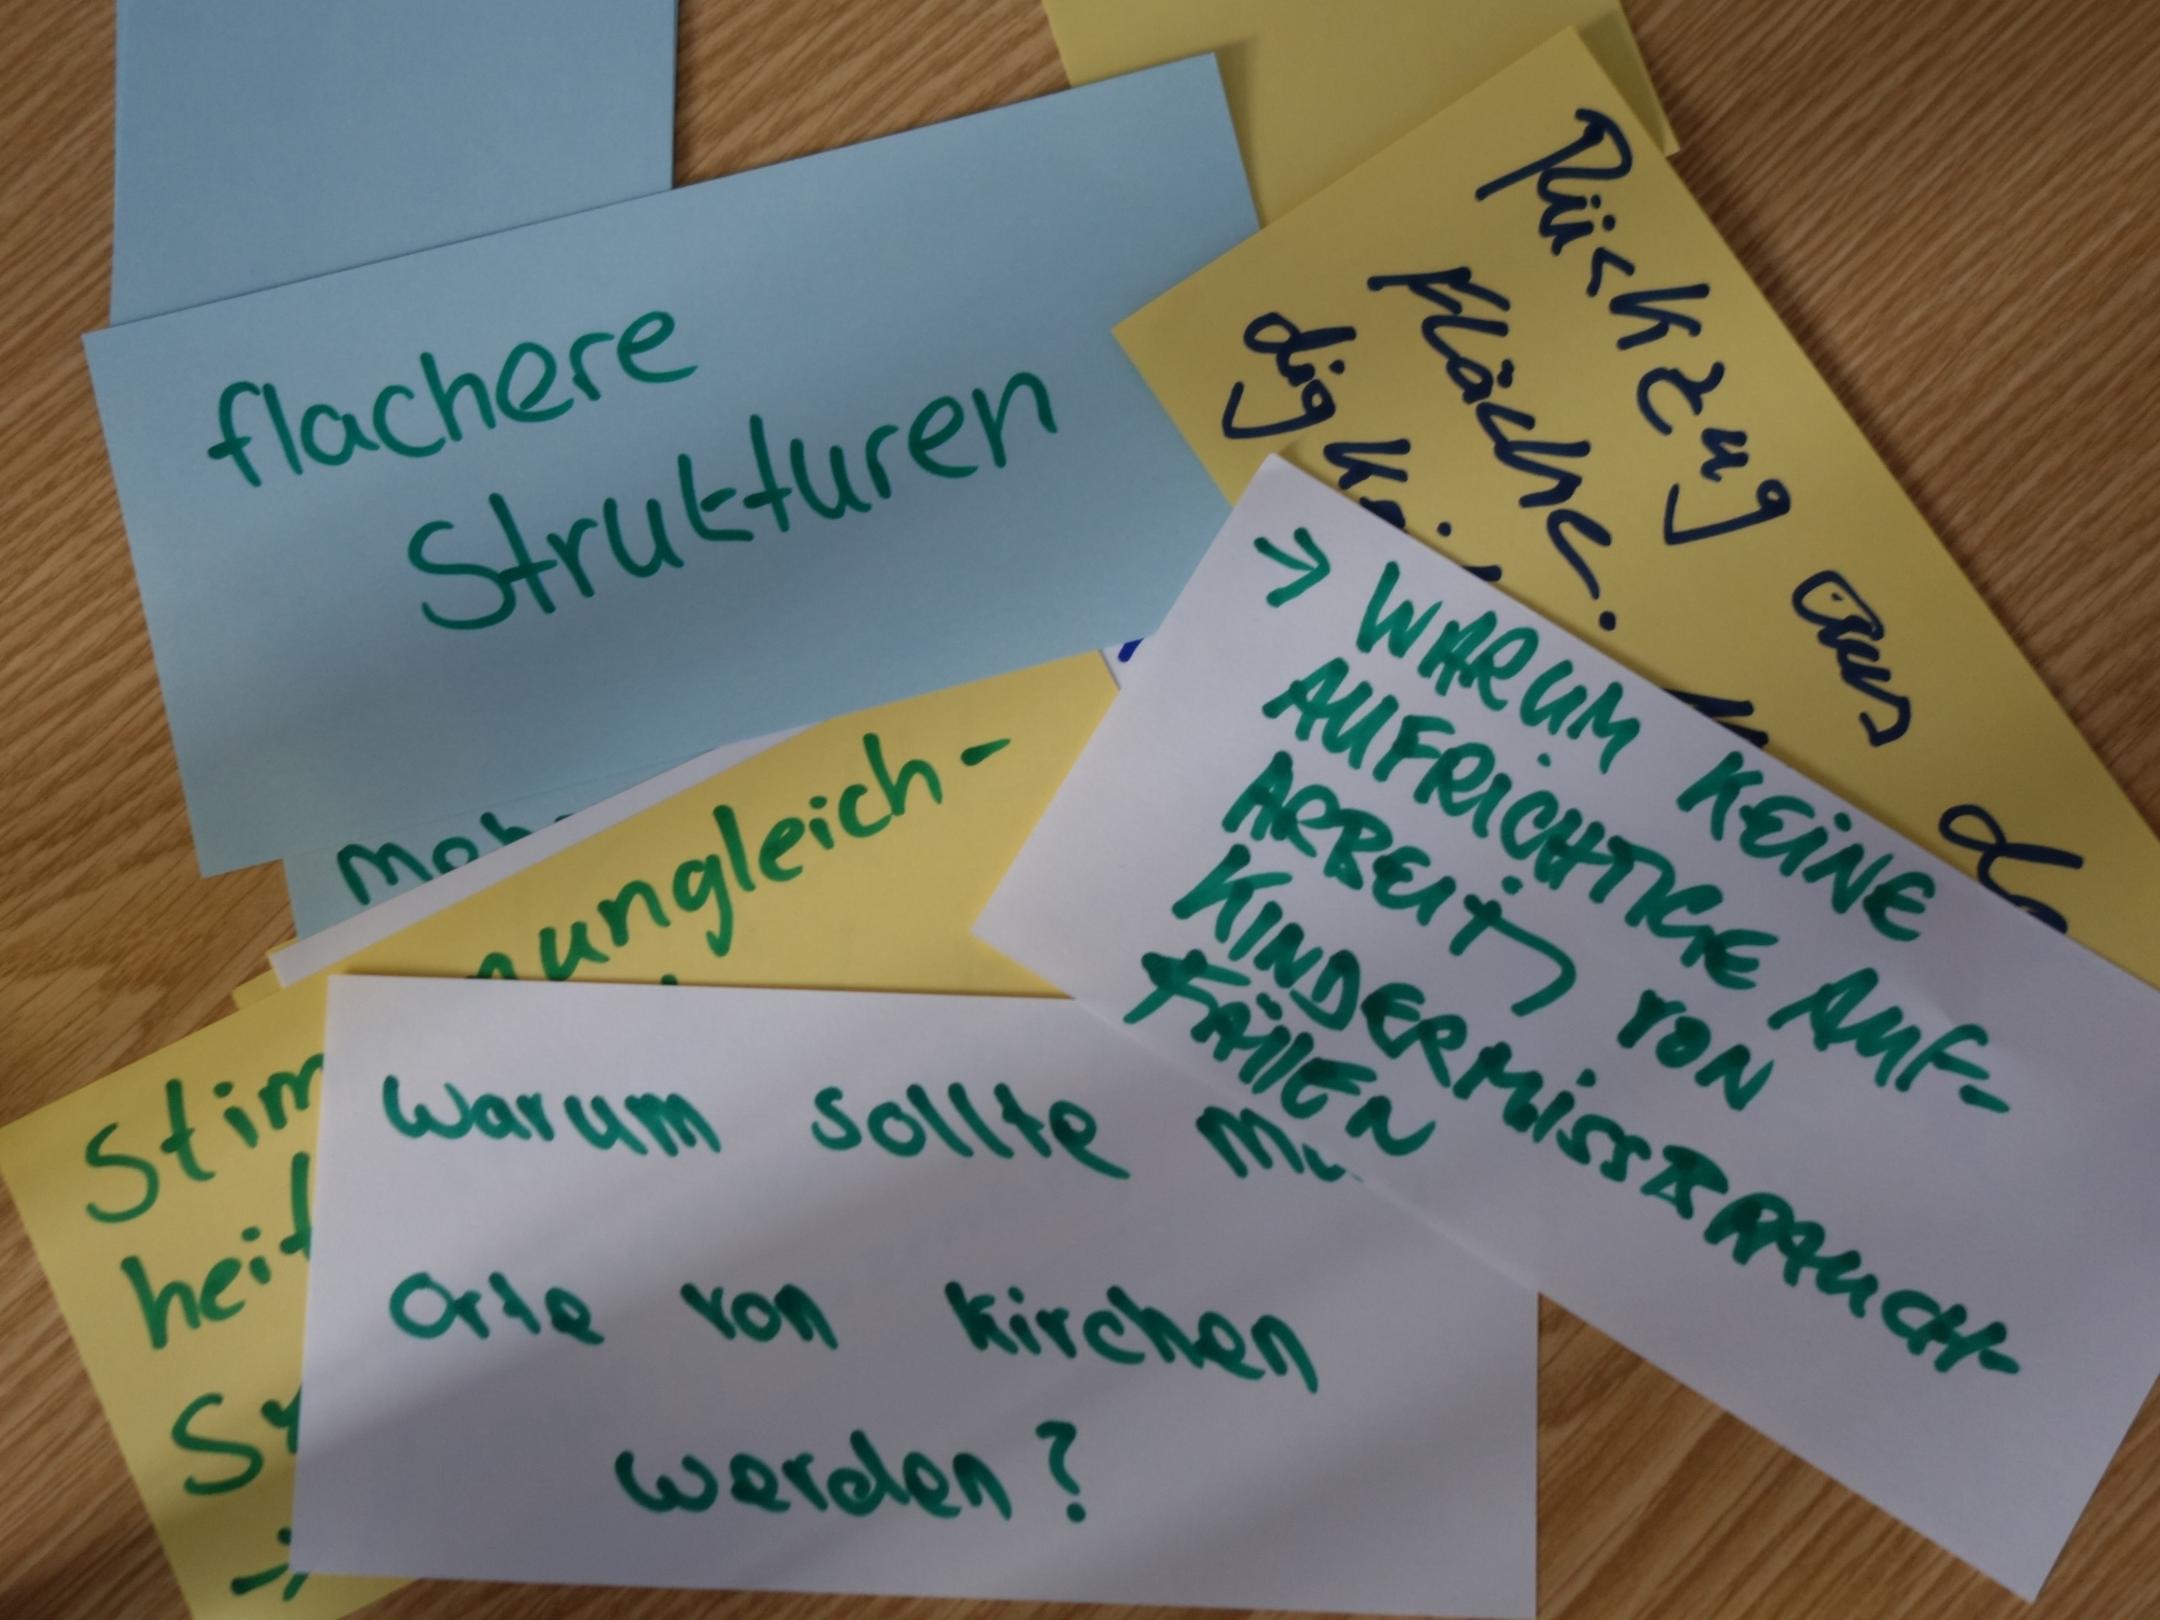 flachere
Strukturen
Rückzug aus
Fläche.
dig
ungleich-
heit
→ WARUM KEINE
AUFRICHTIGE AUF-
ARBEITUNG VON
KINDERMISSBRAUCH-
FÄLLEN
Warum sollte
Orte von Kirchen
werden?